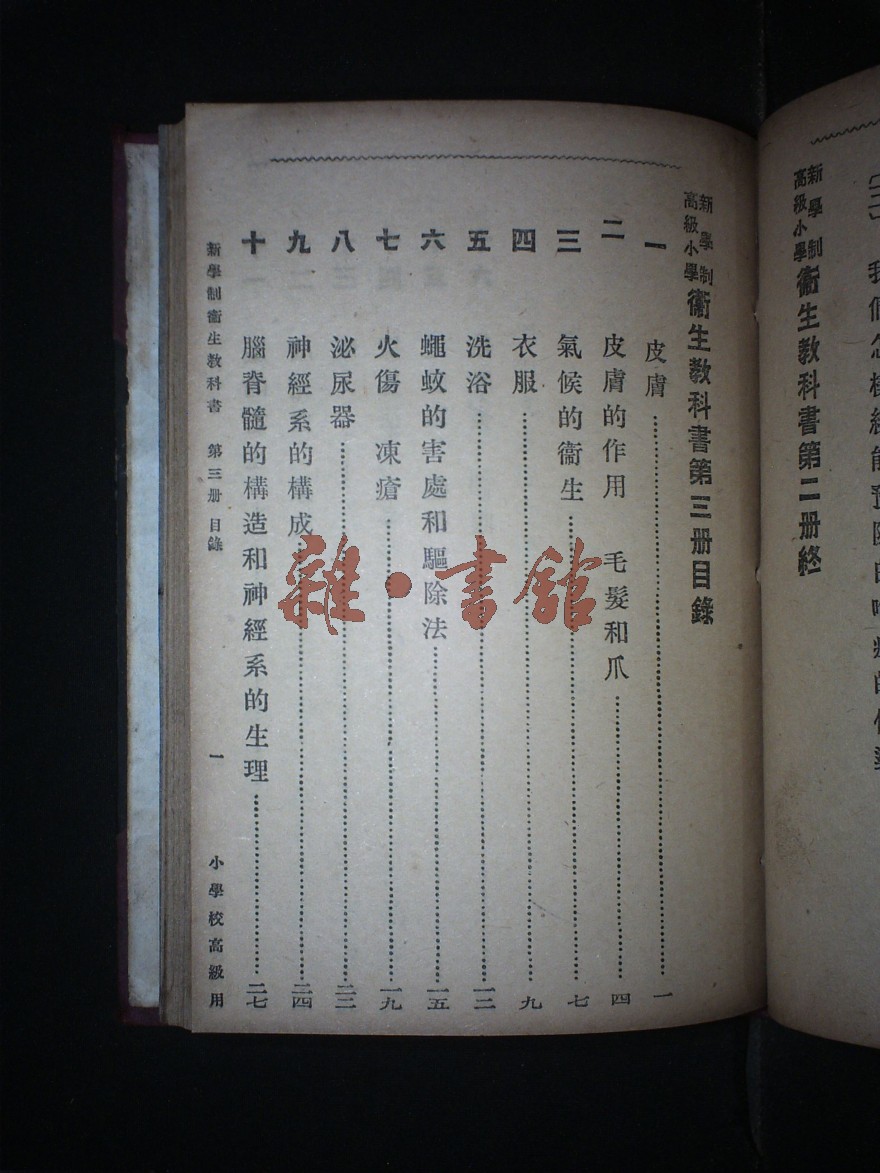 新學制
高級小學
衞生教科書第二册終
新學制
高級小學
衞生教科書第三册目錄
一 皮膚 一
二 皮膚的作用 毛髮和爪 四
三 氣候的衞生 七
四 衣服 九
五 洗浴 一二
六 蠅蚊的害處和驅除法 一五
七 火傷 凍瘡 一九
八 泌尿器 二三
九 神經系的構成 二四
十 腦脊髓的構造和神經系的生理 二七
新學制衞生教科書 第三册 目錄 一 小學校高級用
雜·書館